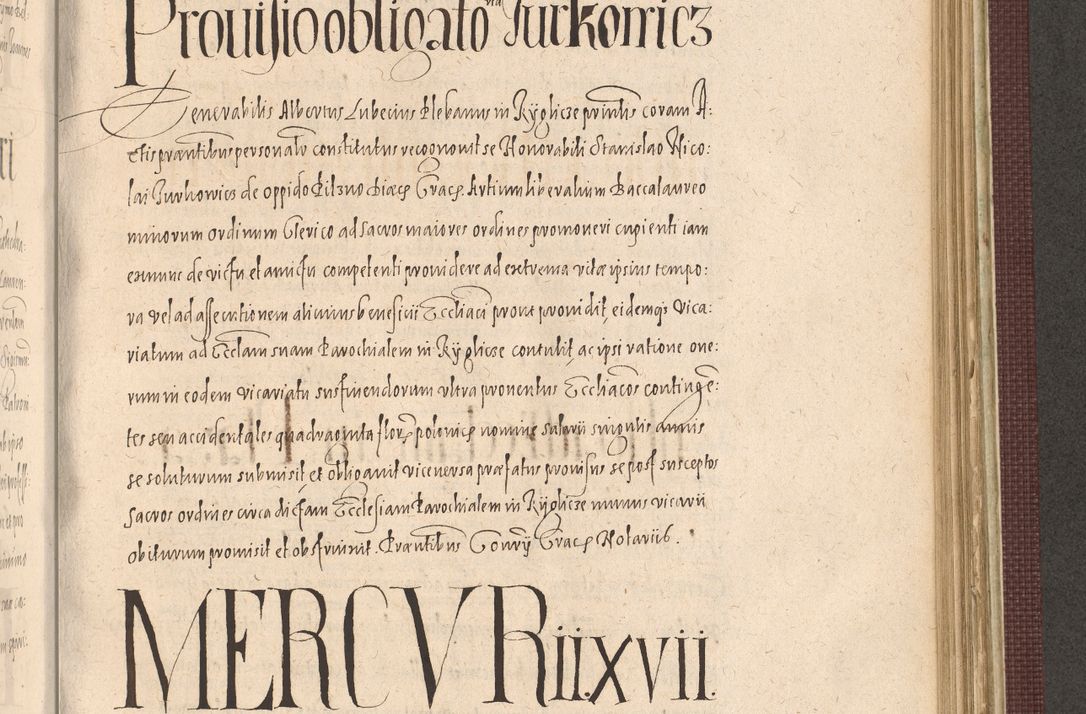 Prouisio obligato Jurkowicz
Venerabilis Albertus Lubecius Plebanus in Ryglicze prīntis coram A:
ctis præntibus personalr constitutus recognouit se Honorabili Stanislao Nico:
lai Jurkowicz de oppido Pilzno Diæcs Cracs Artium liberalium Baccalaureo
minorum ordinum Clerico ad sacros maiores ordines promoueri cupienti iam
de victu et amictu competenti prouidere ad extrema vitæ ipsius tempo:
ra vel ad assecutionem alicuius beneficii Eccliaci prout prouidit, eidemqs vica:
riatum ad Ecclam suam Parochialem in Ryglicze contulit, ac ipsi ratione one:
rum in eodem vicariatu sustinendorum vltra prouentus Eccliacos continge:
tes seu accidentales quadraginta flor. polonics nomine salarii singulis annis
se soluturum submisit et obligauit viceuersa præfatus prouisus se post susceptos
sacros ordines circa dictam Ecclesiam Parochialem in Ryglicze munus vicarii
obiturum promisit et obstrinxit. Præntibus Consrÿ Cracs Notariis.
MERCVRii.xvii.